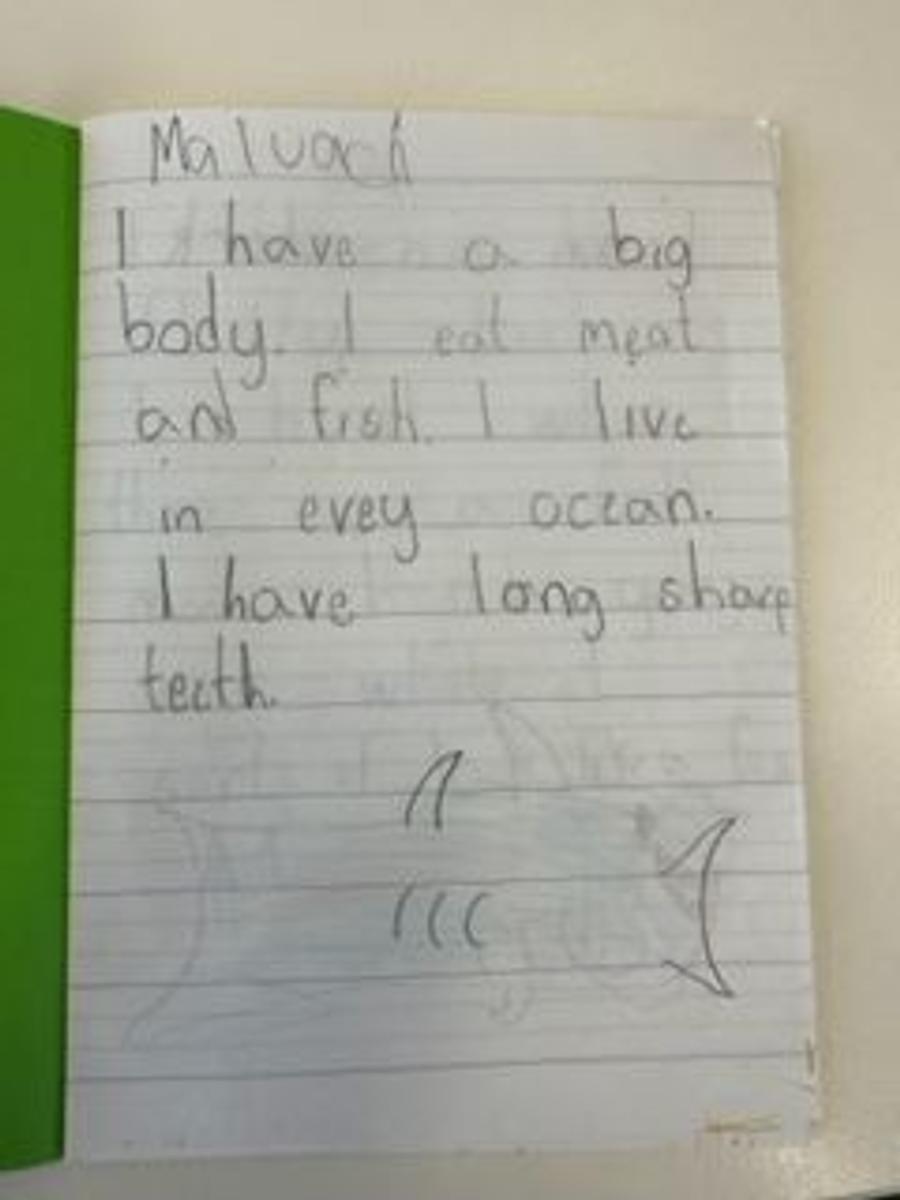 Maluach
I have a big
body. I eat meat
and fish. I live
in evey ocean.
I have long sharp
teeth.